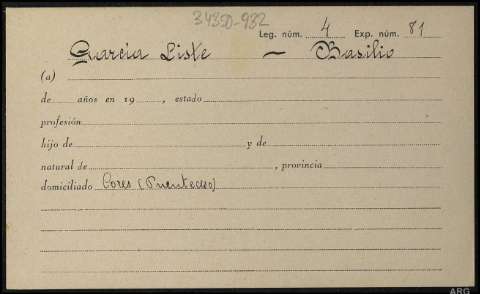 34350-932
Leg. núm. 4 Exp. núm. 81
Guarcia Liste - Basilio
(a)
de años en 19 , estado
profesión
hijo de y de
natural de , provincia
domiciliado Cores (Puenteceso)
ARG